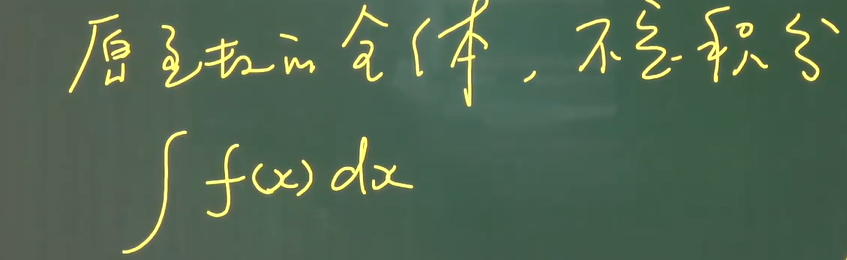 原函数的全体，不定积分
∫ f(x) dx